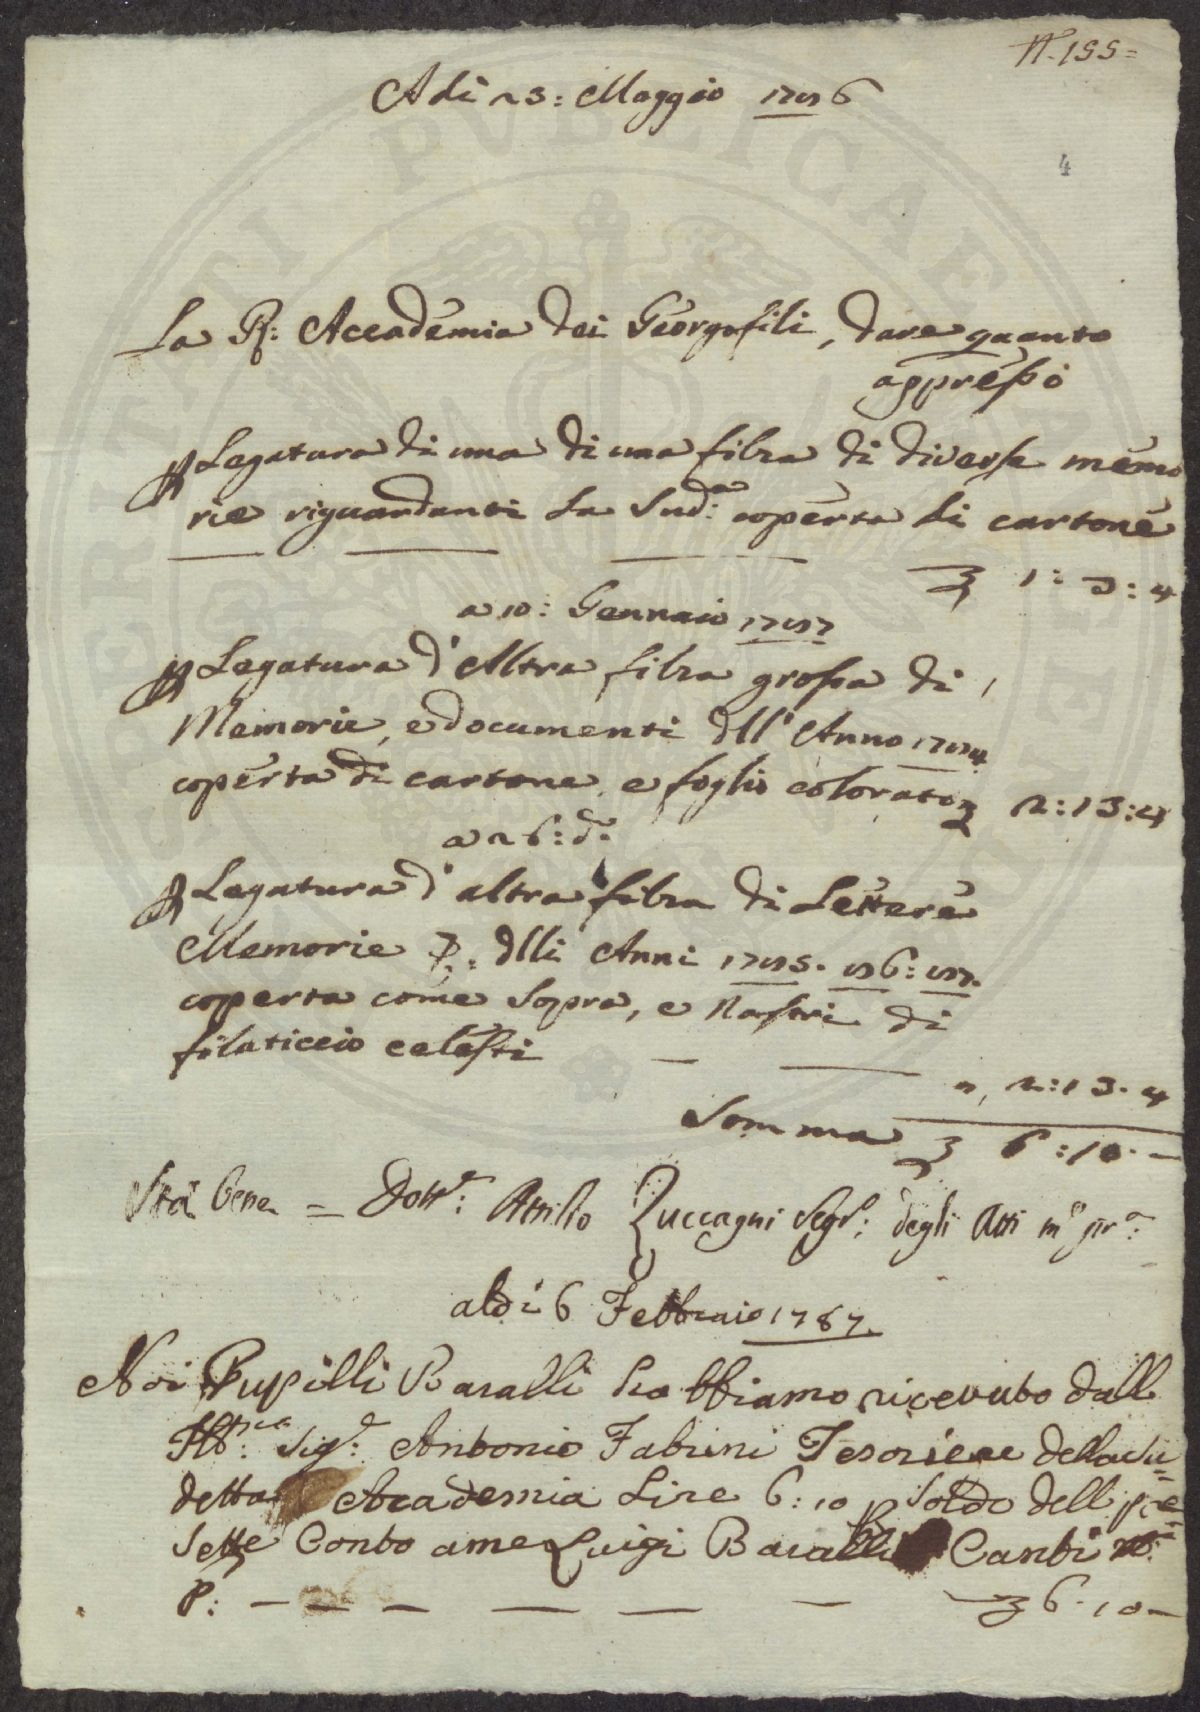 N. 155=
Adi 23: Maggio 1786
4
La R: Accademia dei Georgofili, dare quanto
appresso
p Legatura di una di una filza di diverse memo
rie riguardanti la Sud:a coperta di cartone
1: 3: 4
a 10: Gennaio 1787
p Legatura d'Altra filza grossa di
Memorie, e documenti dll' Anno 1784
coperta di cartone, e foglio colorato 2: 13: 4
a 26: d.o
p Legatura d'altra filza di Lettere
Memorie dlli Anni 1785. 86: 87.
coperta come Sopra, e Nastri di
filaticcio celesti
2: 13. 4
Somma 6: 10. —
Stà bene = Dott.e: Attilio Zuccagni Segr.: degli Atti m.o pr.a:
aldi 6 Febbraio 1787.
Noi Pupilli Baralli habbiamo ricevuto dall
Sig.e: Antonio Fabrini Tesoriere della Su=
detta Accademia Lire 6: 10 p Saldo dell pre=
sette Conto a me Luigi Baralli Canbi
P: — — — — — — 6. 10 —